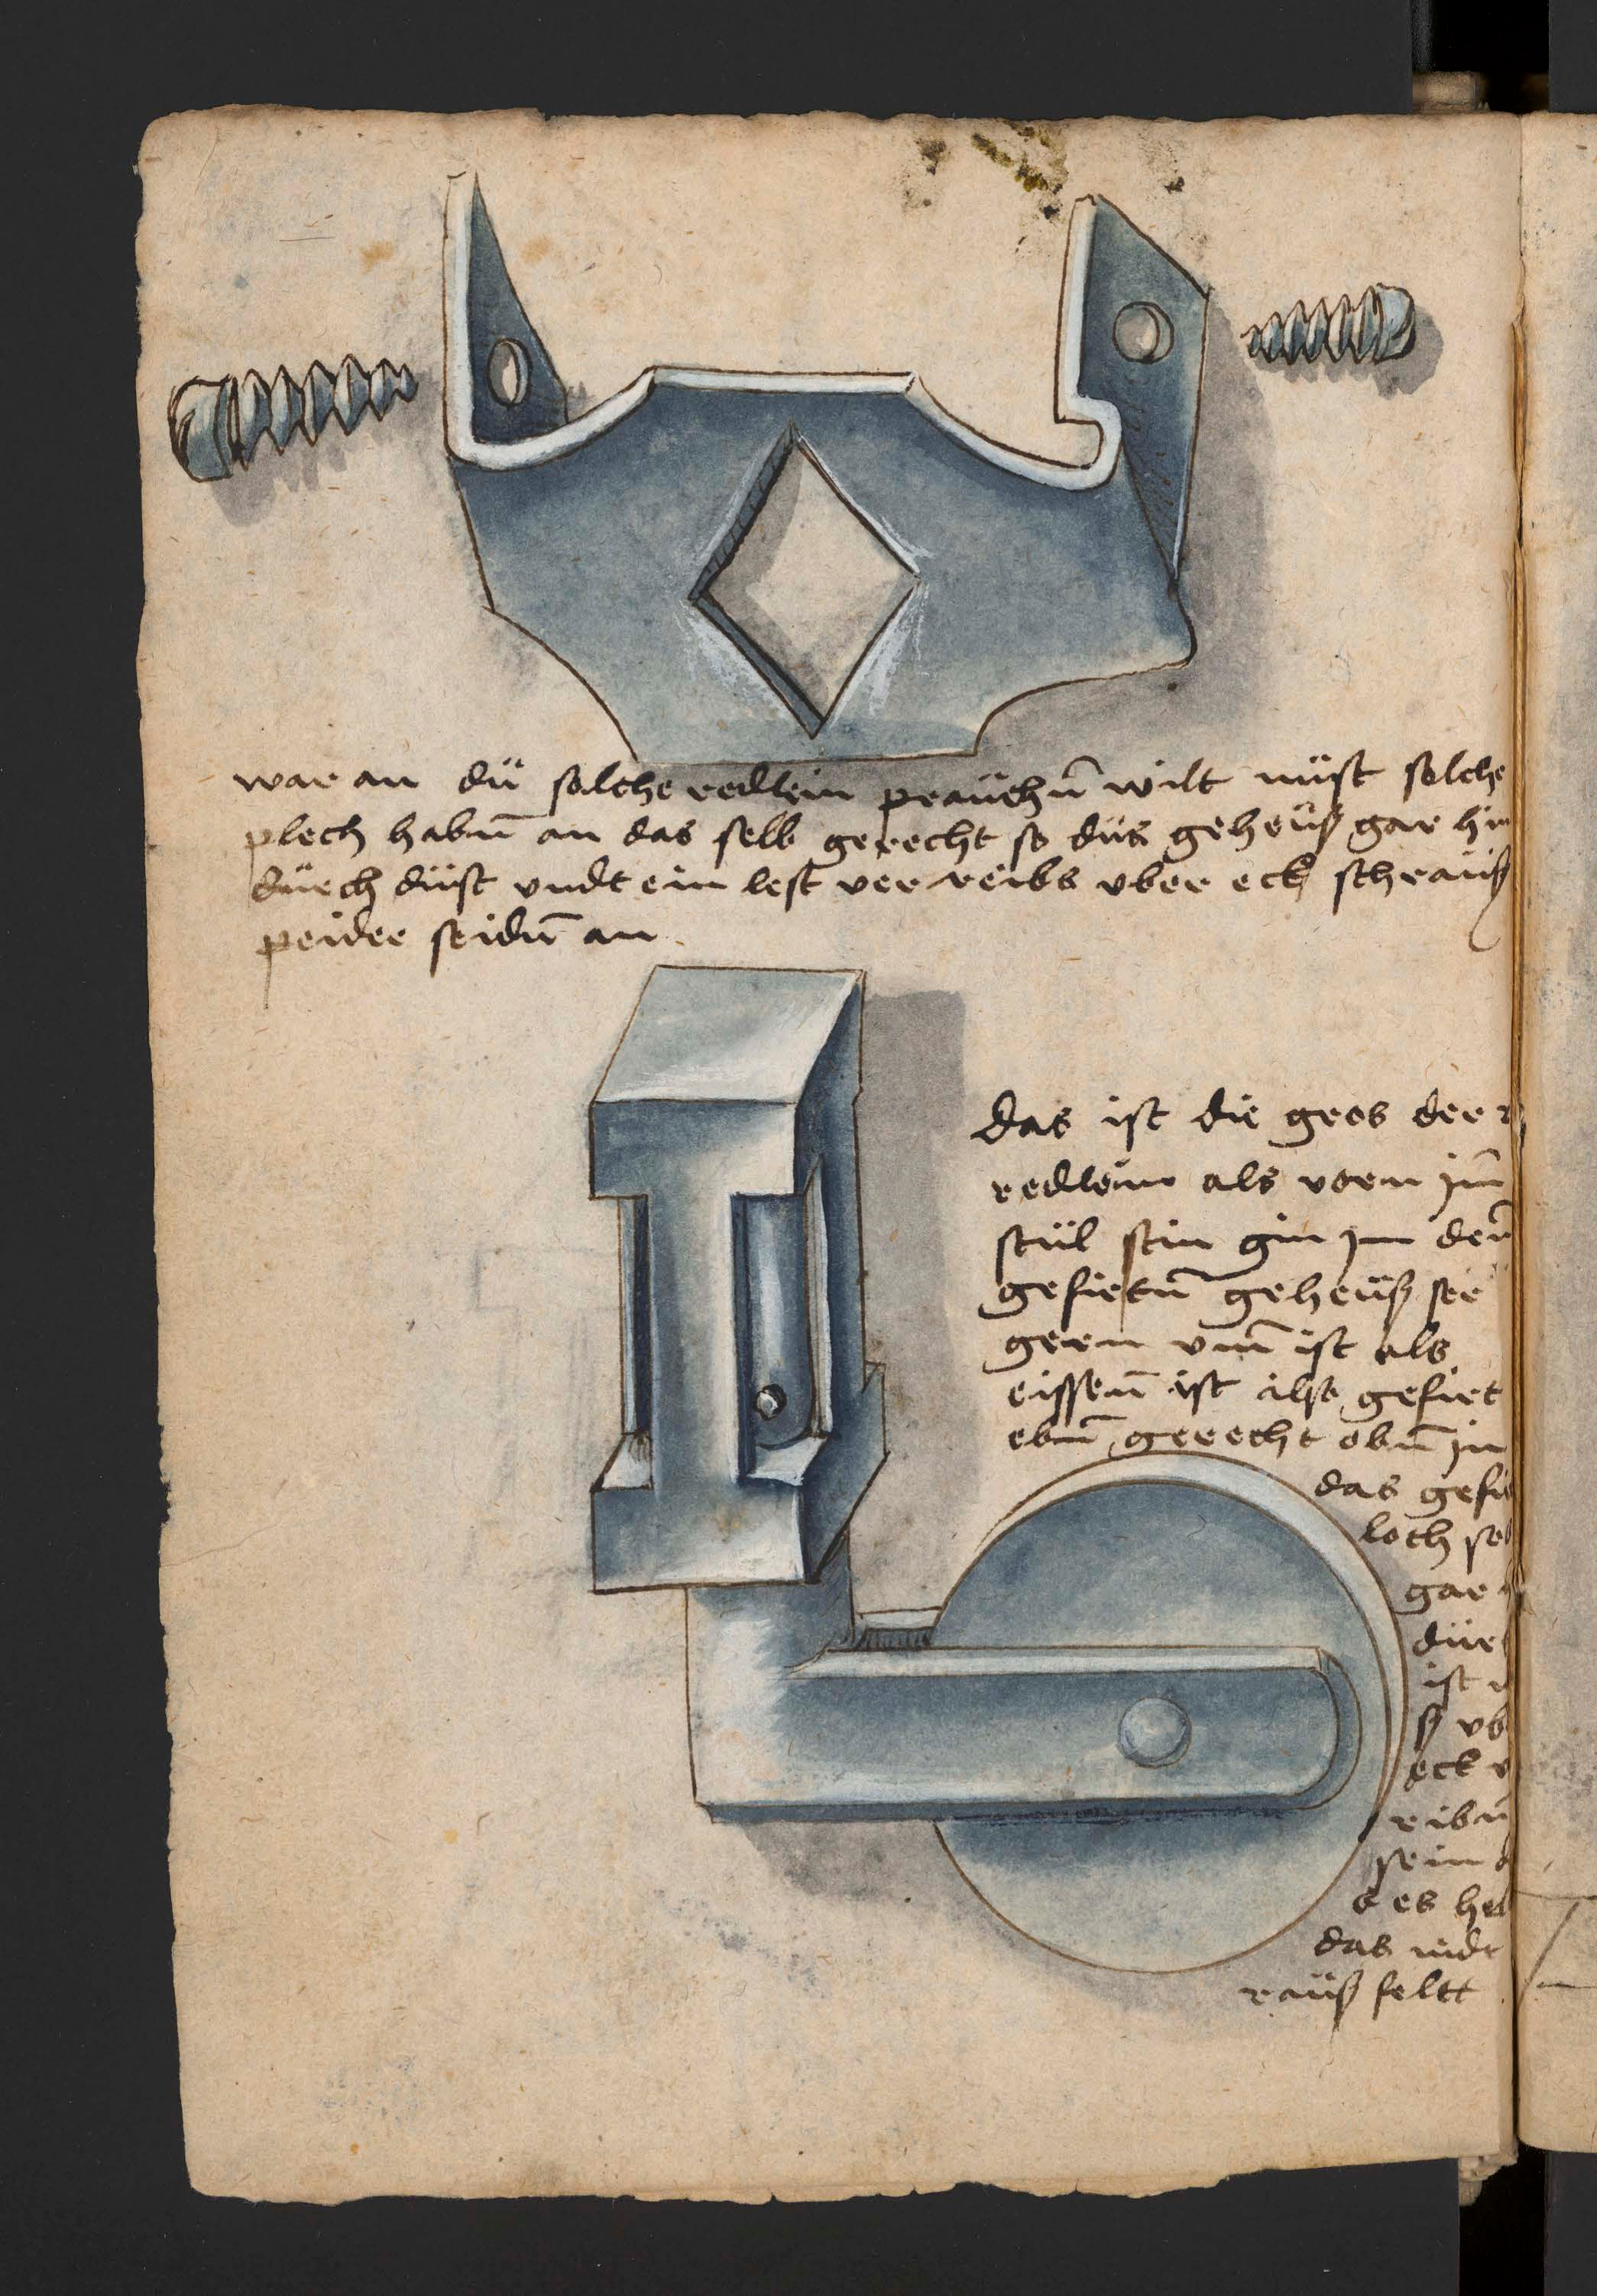 war an dü solche redlein praüchn̄ wilt müst solche
plech habn̄ an das selb gerecht so düs geheüß gar hin
dürch düst vndt ein lest ver reibs vber eck schraüß
peider seidn̄ an
das ist die gros der
redlein als vorn jm̄
stül sein gin jm den̄
gefirtn̄ geheüß ser
gern vm̄ ist als
eissen̄ ist also gefirt
ebn̄ gerecht obn̄ jn
das gefi
loch
gar
dür
ist
ß vb
eck v
ribn̄
sein
s es
das nidr
raüß feltt